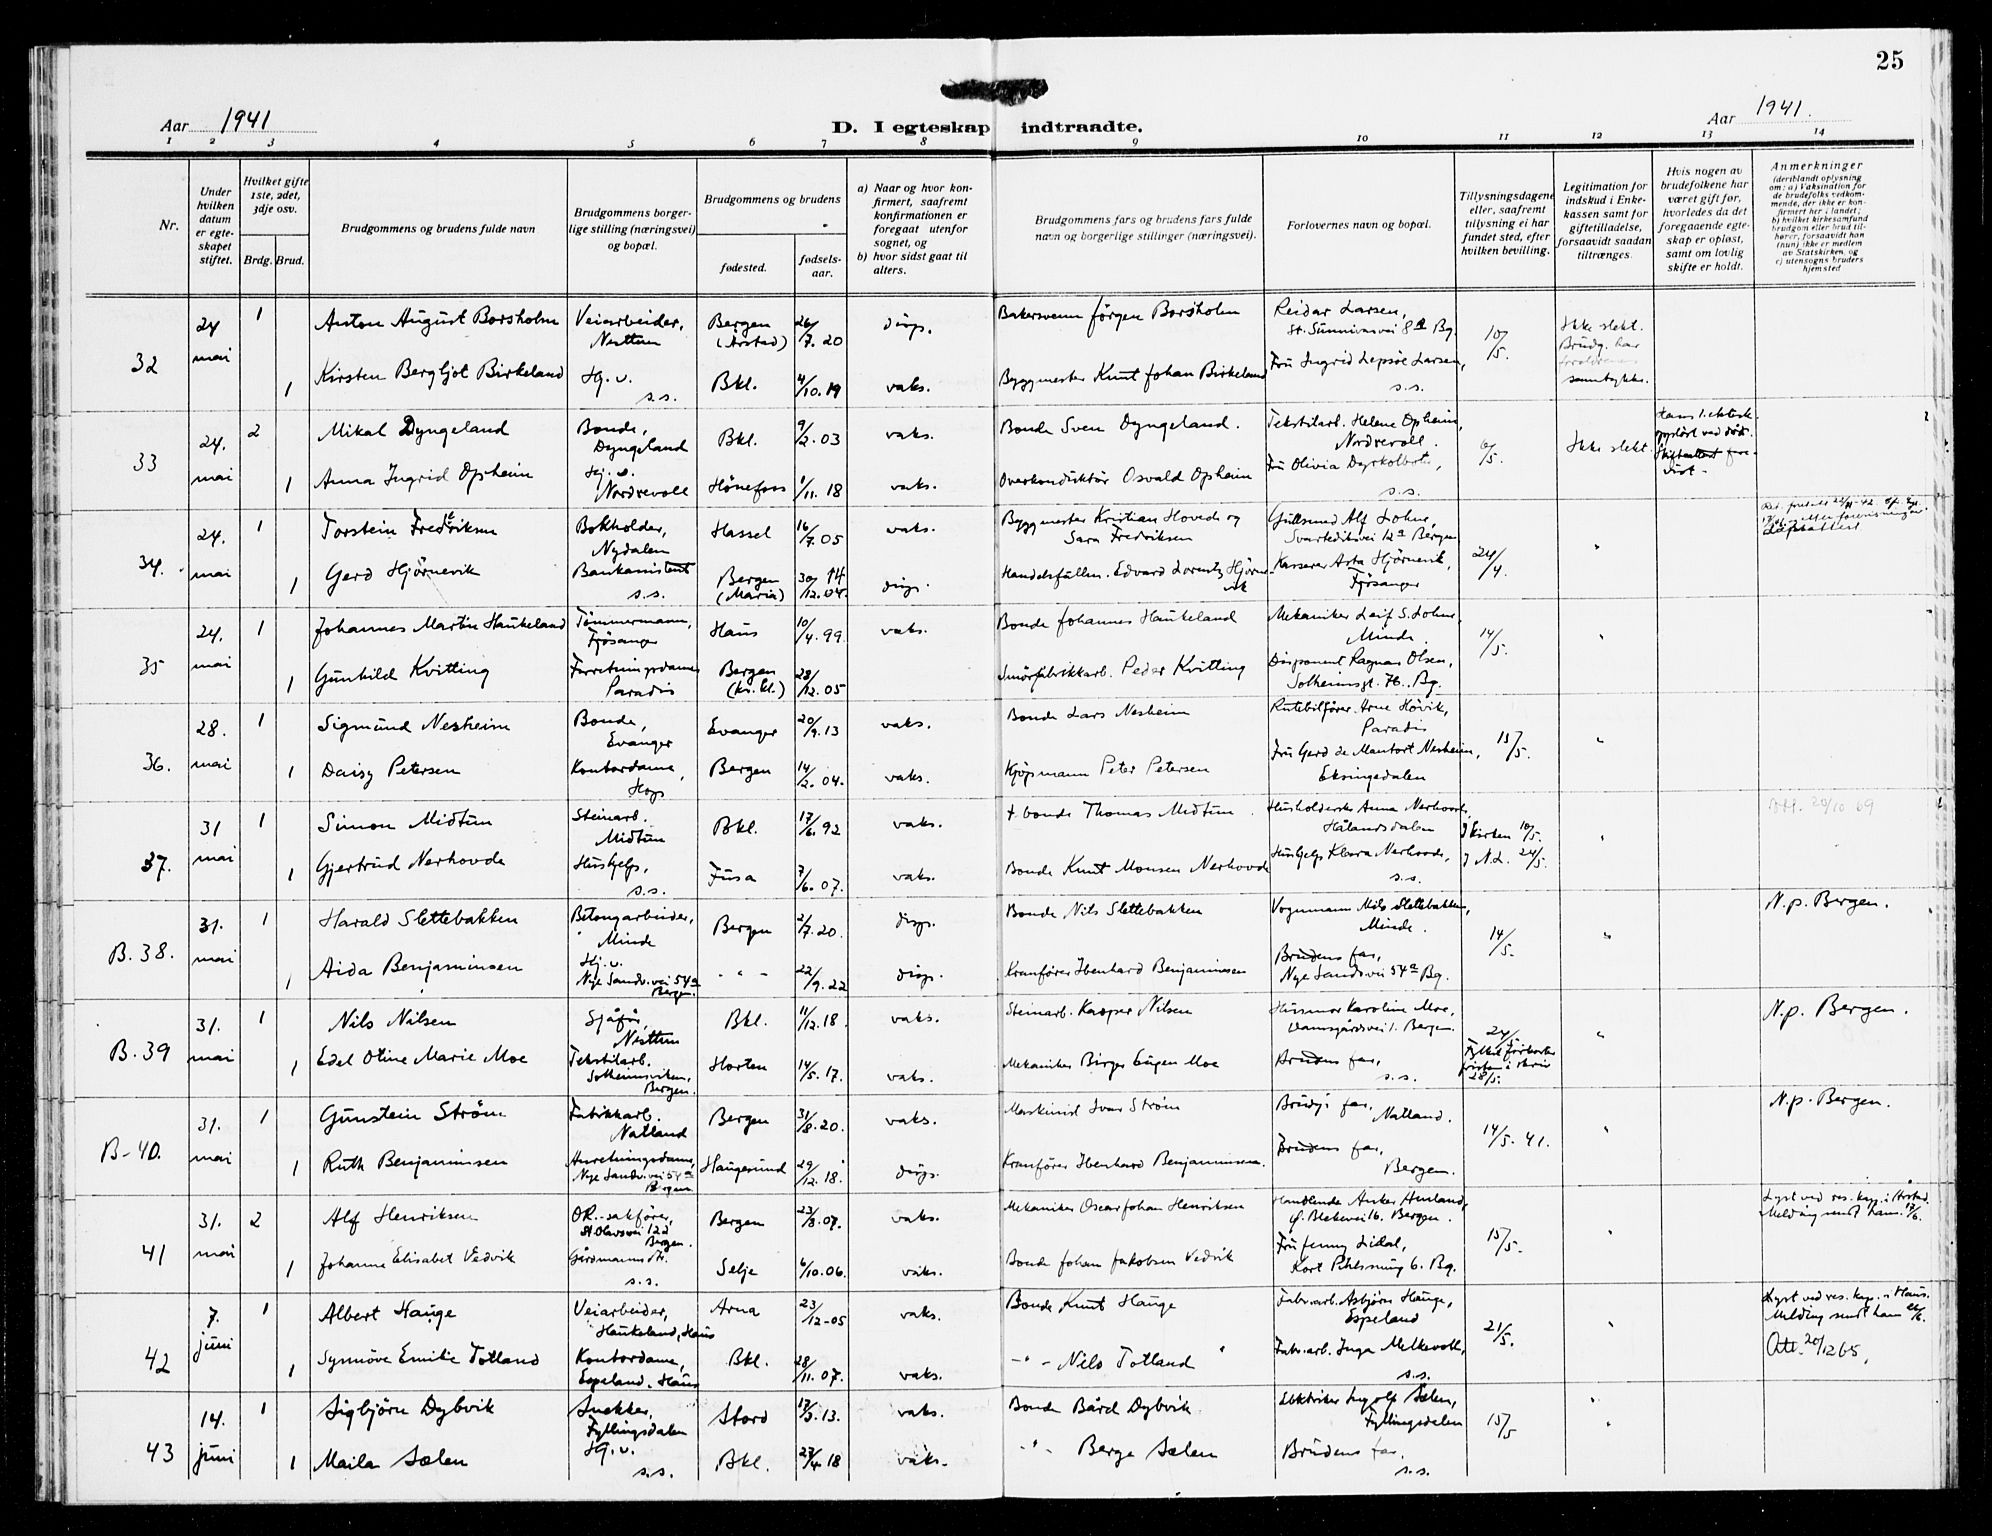 25
Aar 1941
D. I egteskap indtraadte.
Aar 1941.
1 2 3 4 5 6 7 8 9 10 11 12 13 14
Nr.
Under hvilken datum er egteskapet stiftet.
Hvilket gifte 1ste, 2det, 3dje osv.
Brdg. Brud.
Brudgommens og brudens fulde navn
Brudgommens borgerlige stilling (næringsvei) og bopæl.
Brudgommens og brudens
fødested.
fødselsaar.
a) Naar og hvor konfirmert, saafremt konfirmationen er foregaat utenfor sognet, og
b) hvor sidst gaat til alters.
Brudgommens fars og brudens fars fulde navn og borgerlige stillinger (næringsvei).
Forlovernes navn og bopæl.
Tillysningsdagene eller, saafremt tillysning ei har fundet sted, efter hvilken bevilling.
Legitimation for indskud i Enkekassen samt for giftetilladelse, forsaavidt saadan tiltrænges.
Hvis nogen av brudefolkene har været gift før, hvorledes da det foregaaende egteskap er opløst, samt om lovlig skifte er holdt.
Anmerkninger
(deriblandt oplysning om: a) Vaksination for de brudefolks vedkommende, der ikke er konfirmert her i landet; b) hvilket kirkesamfund brudgom eller brud tilhører, forsaavidt han (hun) ikke er medlem av Statskirken, og c) utensogns bruders hjemsted
32 24 mai 1 Anton August Borsholm Veiarbeider, Nesttun Bergen (Årstad) 26/7. 20 disp. Bakersvenn Jörgen Borsholm Reidar Larsen, St. Sunnivasvei 8a Bg. 10/5. Ikke slekt. Brudg. har foreldrenes samtykke.
1 Kirsten Bergljot Birkeland Hj. v. s.s. Bkl. 4/10. 19 vaks. Byggmester Knut Johan Birkeland Fru Ingrid Lepsøe Larsen, s.s.
33 24. mai 2 Mikal Dyngeland Bonde, Dyngeland Bkl. 9/2. 03 vaks. Bonde Sven Dyngeland. Tekstilarb. Helene Opheim, Nordrevoll. 6/5. Ikke slekt. Hans 1. ektesk. oppløst ved død.
1 Anna Ingrid Opheim Hj. v. Nordrevoll Hönefoss 1/11. 18 vaks. Overkonduktör Osvald Opheim Fru Olivia Dyrkolbotn, s.s.
34. 24. mai 1 Torstein Fredriksen Bokholder, Nydalen Hassel 16/7. 05 vaks. Byggmester Kristian Hovede og Sara Fredriksen Gullsmed Alf Lohne, Svartediksvei 12a Bergen 24/4. "
1 Gerd Hjörnevik Bankassistent s.s. Bergen (Maria) 30/12. 04. 14 disp. Handelsfullm. Edvard Lorentz Hjörnevik Kasserer Asta Hjörnevik, Fjösanger
35 24. mai 1 Johannes Martin Haukeland Tömmermann, Fjösanger Haus 10/4. 99. vaks. Bonde Johannes Haukeland Mekaniker Leif S. Lohne, Minde. 14/5. "
1 Gunhild Kvitting Forretningsdame Paradis Bergen (kr. kl.) 28/12. 05 Smörfabrikkarb. Peder Kvitting Disponent Ragnar Olsen, Solheimsgt. 76., Bg.
36. 28. mai 1 Sigmund Nesheim Bonde, Evanger Evanger 20/9. 13 vaks. Bonde Lars Nesheim Rutebilförer Arne Hövik, Paradis 15/5. "
1 Daisy Petersen Kontordame, Hop Bergen 14/2. 04. vaks. Kjöpmann Peter Petersen Fru Gerd de Mantort Nesheim, Eksingedalen
37. 31 mai 1 Simon Midtun Steinarb. Midtun Bkl. 17/6. 92 vaks. + bonde Thomas Midtun. Husholderske Anna Nerhovde, Hålandsdalen I kirken 10/5. I N.L. 24/5. " Att. 20/10 69
1 Gjertrud Nerhovde Hushjelp, s.s. Fusa 7/6. 07. vaks. Bonde Knut Monsen Nerhovde Hushjelp Klara Nerhovde, s.s.
B. 38. 31. mai 1 Harald Slettebakken Betongarbeider, Minde Bergen 2/7. 20. disp. Bonde Nils Slettebakken Vognmann Nils Slettebakken, Minde. 14/5. " N.p. Bergen.
1 Aida Benjaminsen Hj. v. Nye Sandv. vei 54a Bergen. - " - 22/9. 22 disp. Kranförer Ibenhard Benjaminsen Brudens far, Nye Sandsvei 54a Bg.
B. 39 31. mai 1 Nils Nilsen Sjåför, Nesttun Bkl. 11/12. 18. vaks. Steinarb. Kasper Nilsen Husmor Karoline Moe, Damsgårdsvei 1. Bergen. 24/5 " N.p. Bergen.
1 Edel Otine Marie Moe Tekstilarb. Solheimsviken, Bergen. Horten 14/5. 17. vaks. Mekaniker Birger Eugen Moe Brudens far, s.s. 28/5.
B-40. 31. mai 1 Gunstein Ström Fabrikkarb. Natland Bergen 31/8. 20. vaks. Maskinist Ivar Ström Brudg's far, Natland. 14/5. 41. " N.p. Bergen.
1 Ruth Benjaminsen Anretningsdame, Nye Sandv. vei 54a Bergen Haugesund 29/12. 18. disp. Kranförer Ibenhard Benjaminsen. Brudens far, Bergen.
41 31. mai 2 Alf Henriksen O.R. sakförer, St. Olavsvei 12a Bergen. Bergen 23/3. 07. vaks. Mekaniker Oscar Johan Henriksen Handlende Anker Amland, Bergen. 15/5. " Lyst ved res. kap. i Årstad. Melding sendt ham 17/6.
1 Johanne Elisabet Vedvik Gårdmannsdtr. s.s. Selje 6/10. 06. vaks. Bonde Johan Jakobsen Vedvik Fru Jenny Lidal, 6. Bg.
42 7. juni 1 Albert Hauge Veiarbeider, Haukeland, Haus Arna 23/12-05 vaks. Bonde Knut Hauge Fabr.arb. Asbjörn Hauge, Espeland 21/5. " Lyst ved res. kap. i Haus. Melding sendt ham /6. Att. 20/12 65,
1 Synnöve Emilie Totland Kontordame, Espeland, Haus Bkl. 28/11. 07. vaks. - " - Nils Totland Fabr.arb. Inga Melkevoll, s.s.
43 14. juni 1 Sigbjörn Dybvik Snekker, Fyllingsdalen Stord 17/3. 13. vaks. Bonde Bård Dybvik Elektriker Ingolf Sælen, Fyllingsdalen 15/5 "
1 Maila Sælen Hj. v. s.s. Bkl. 23/4. 18 vaks. - " - Berge Sælen Brudens far, s.s.